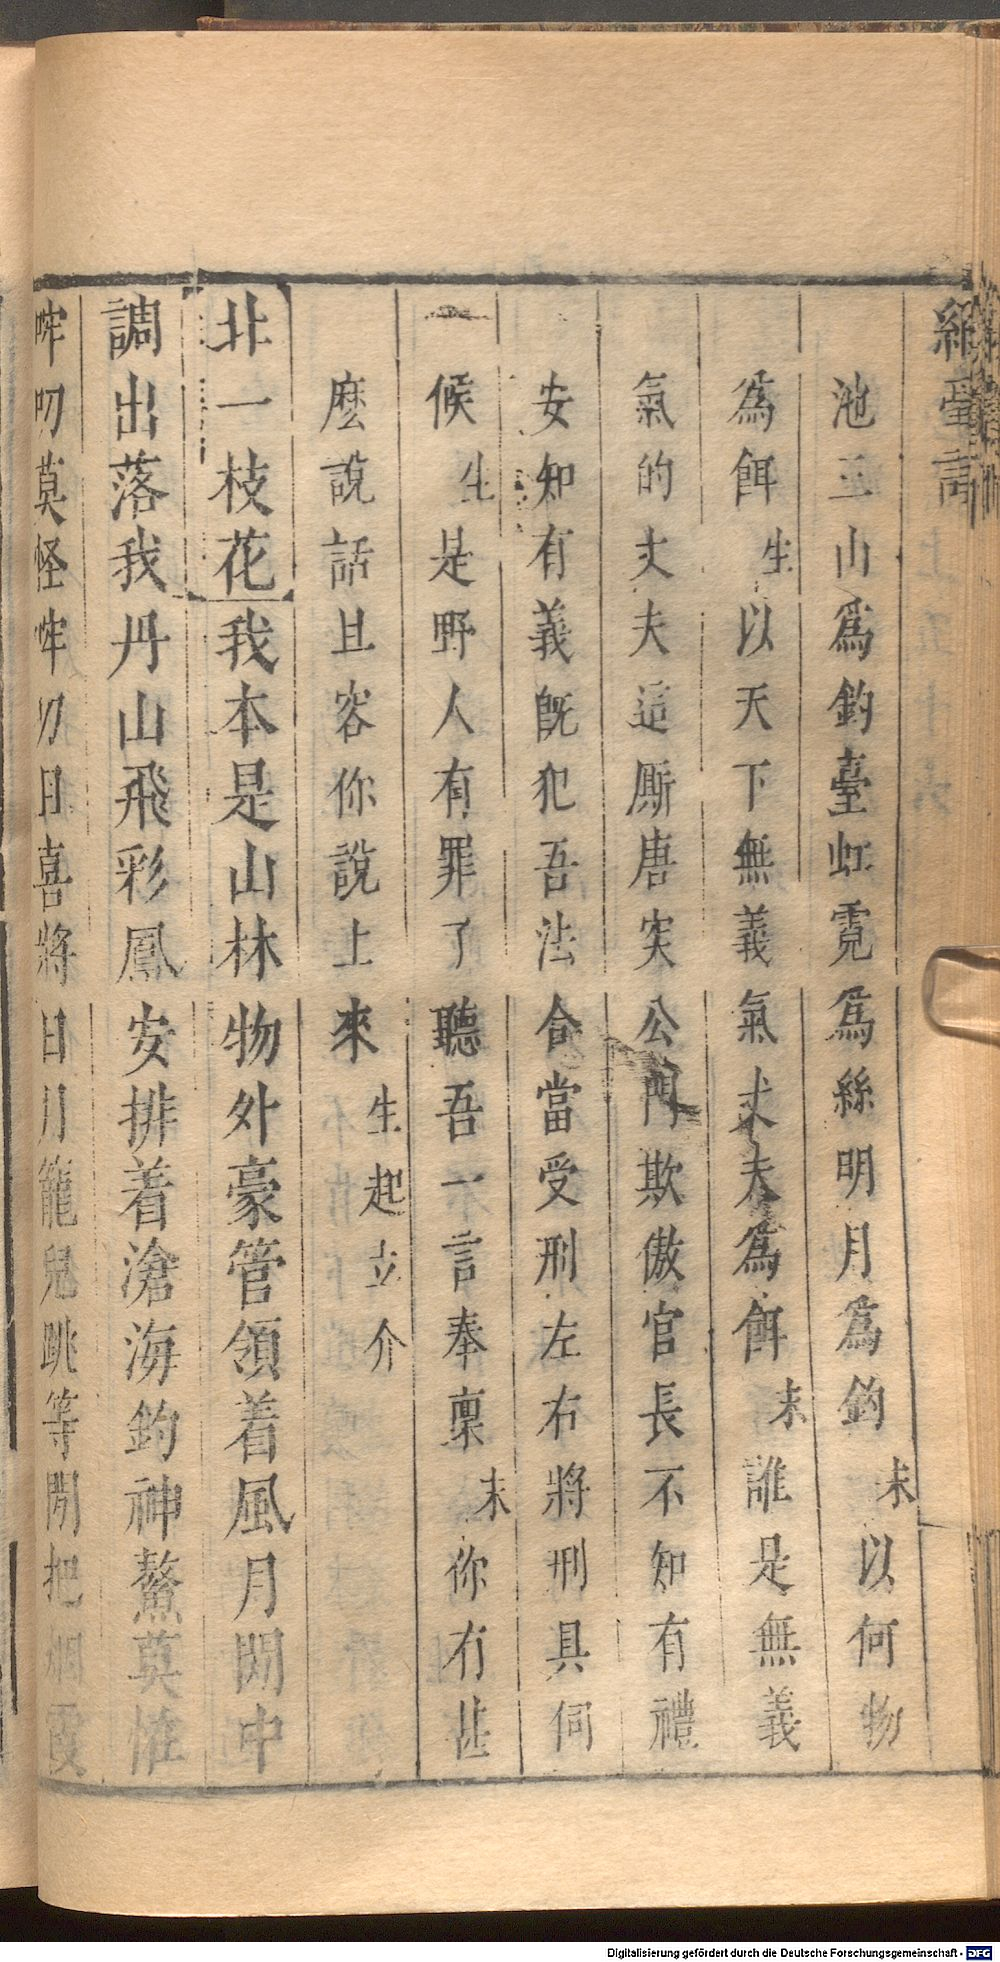 池三山爲鈎臺虹霓爲絲明月爲鈎末以何物
爲餌生以天下無義氣丈夫爲餌末誰是無義
氣的丈夫這厮唐突公門欺傲官長不知有禮
安知有義旣犯吾法合當受刑左右將刑具伺
候生是野人有罪了聽吾一言奉稟末你有甚
麽說話且容你說上來生起立介
北一枝花我本是山林物外豪管領着風月閒中
調出落我丹山飛彩鳳安排着滄海釣神鰲莫惟
哰叨莫怪哰叨日喜將日月籠兒跳等閒把烟霞
Digitalisierung gefördert durch die Deutsche Forschungsgemeinschaft - DFG